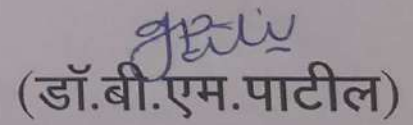 (डॉ.बी.एम.पाटील)